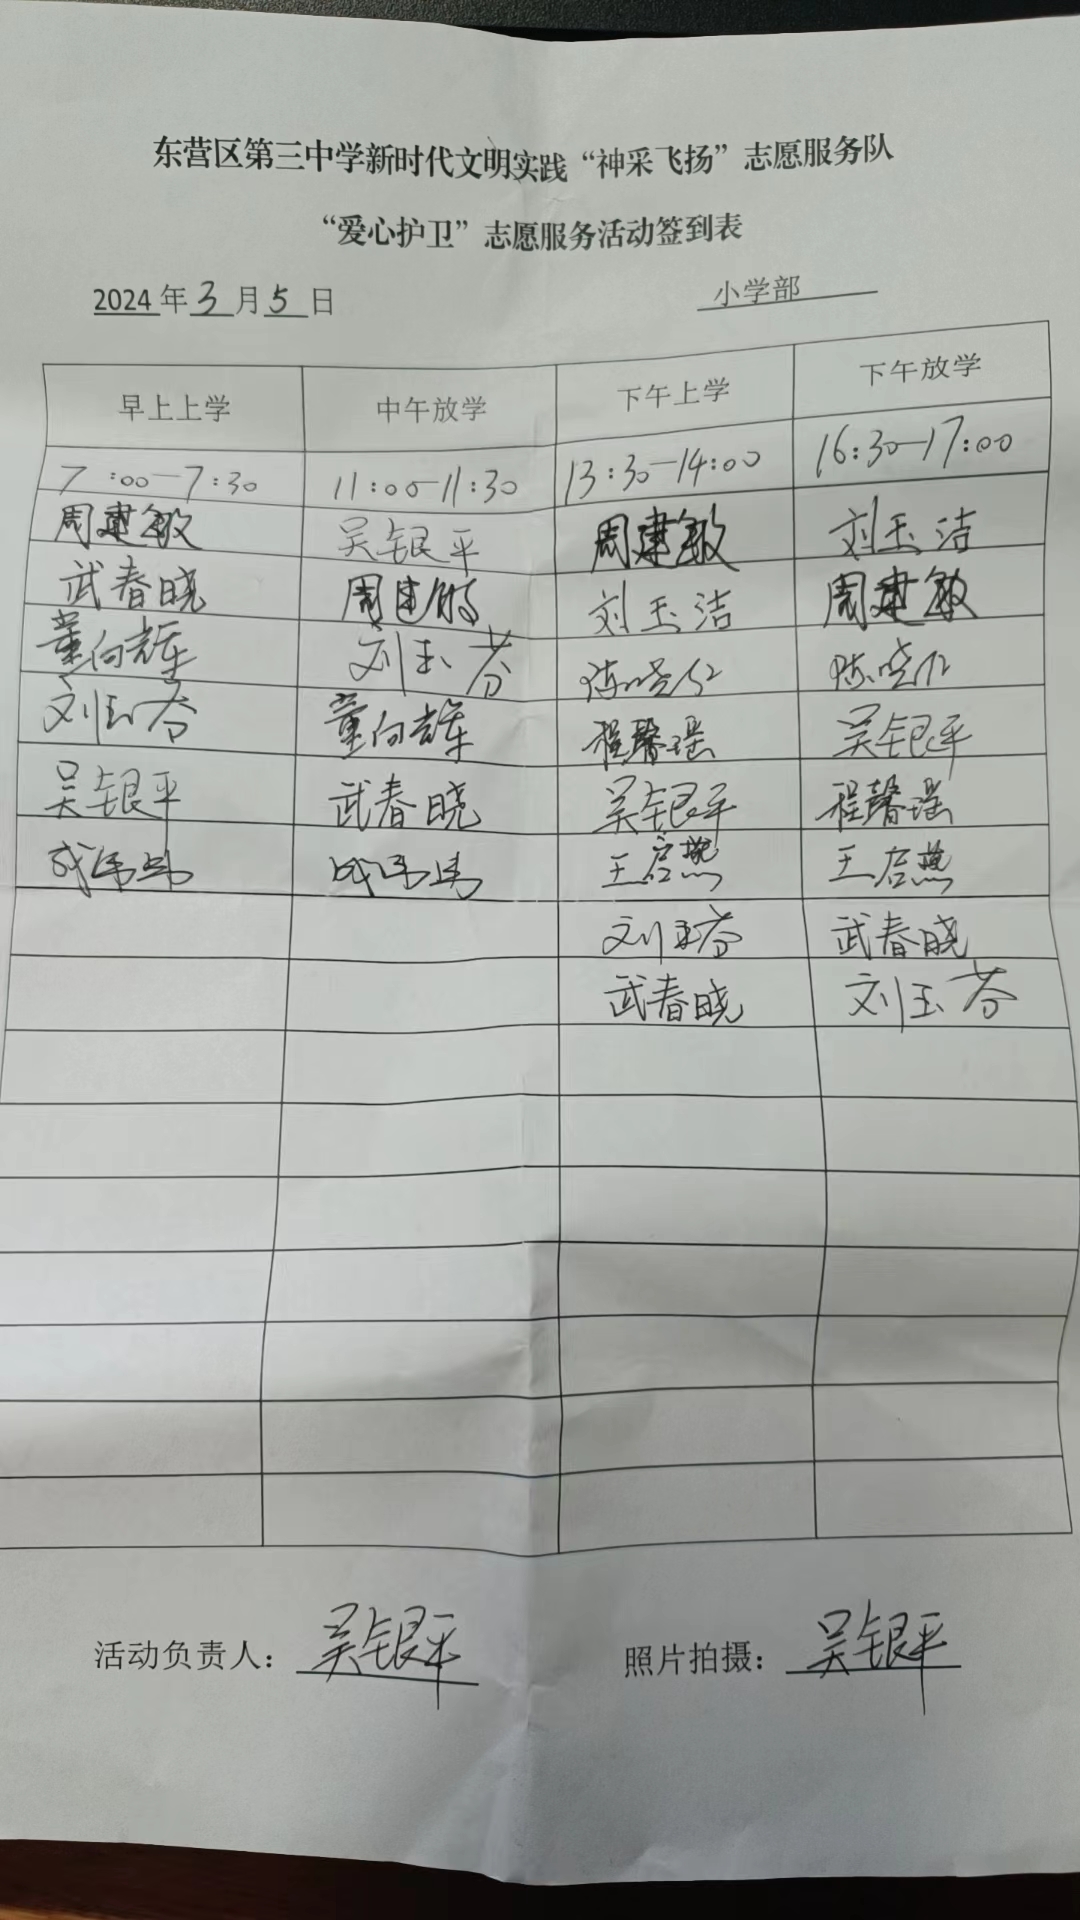 东营区第三中学新时代文明实践“神采飞扬”志愿服务队
“爱心护卫”志愿服务活动签到表
2024年3月5日 小学部
早上上学 中午放学 下午上学 下午放学
7:00—7:30 11:00-11:30 13:30—14:00 16:30—17:00
周建敏 吴银平 周建敏 刘玉洁
武春晓 周建敏 刘玉洁 周建敏
董向辉 刘玉芬 陈晓仁 陈晓仁
刘玉芬 董向辉 程馨瑶 吴银平
吴银平 武春晓 吴银平 程馨瑶
王启燕 王启燕
刘玉芬 武春晓
武春晓 刘玉芬
活动负责人：吴银平 照片拍摄：吴银平